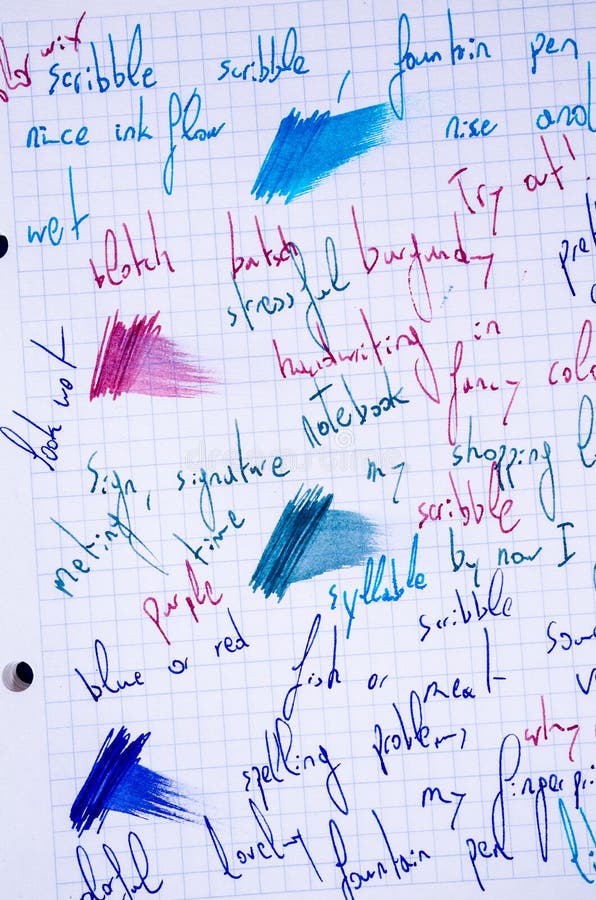 wix
scribble, scribble, fountain pen
nince ink flow nise and
wet
Try out!
blotch butsch burgundy
stressful
handwriting in
fancy colo
look wet
notebook
Sign, signature my shopping l
meting time
scribble
purple
syllable by now I
scribble
blue or red
fish or meat som
spelling problems why
my fingerpri
orful lovely fountain pen li